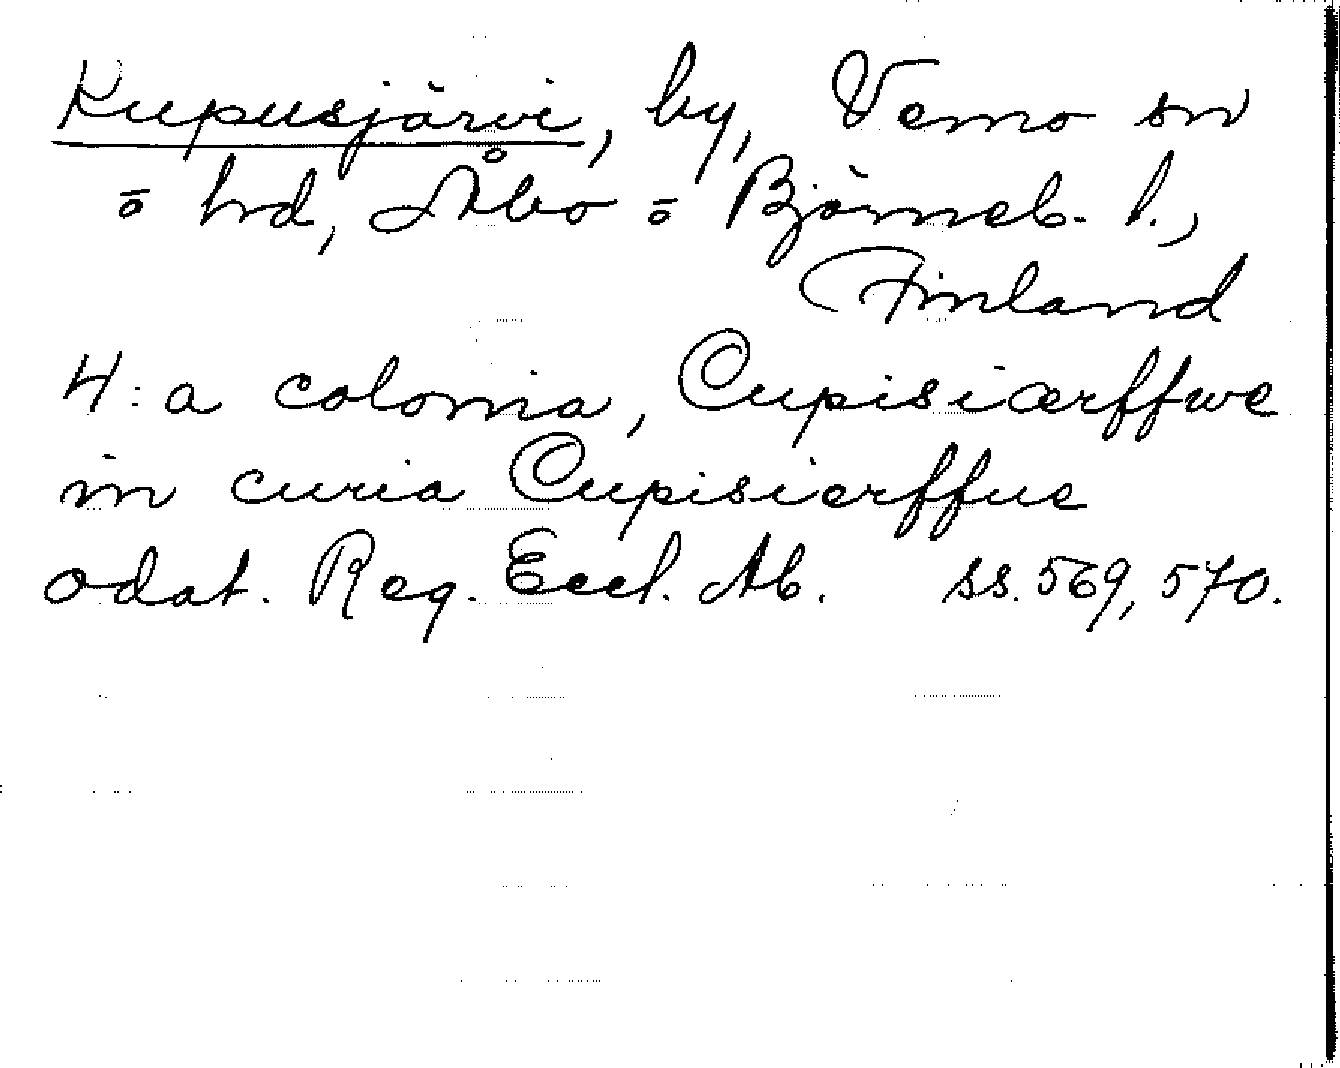 Kupusjärvi, by, Vemo sn
o hd, Åbo o Björneb. l.,
Finland
4:a colonia, Cupisiærffwe
in curia Cupisierffue
odat. Reg. Eccl. Ab. ss. 569, 570.